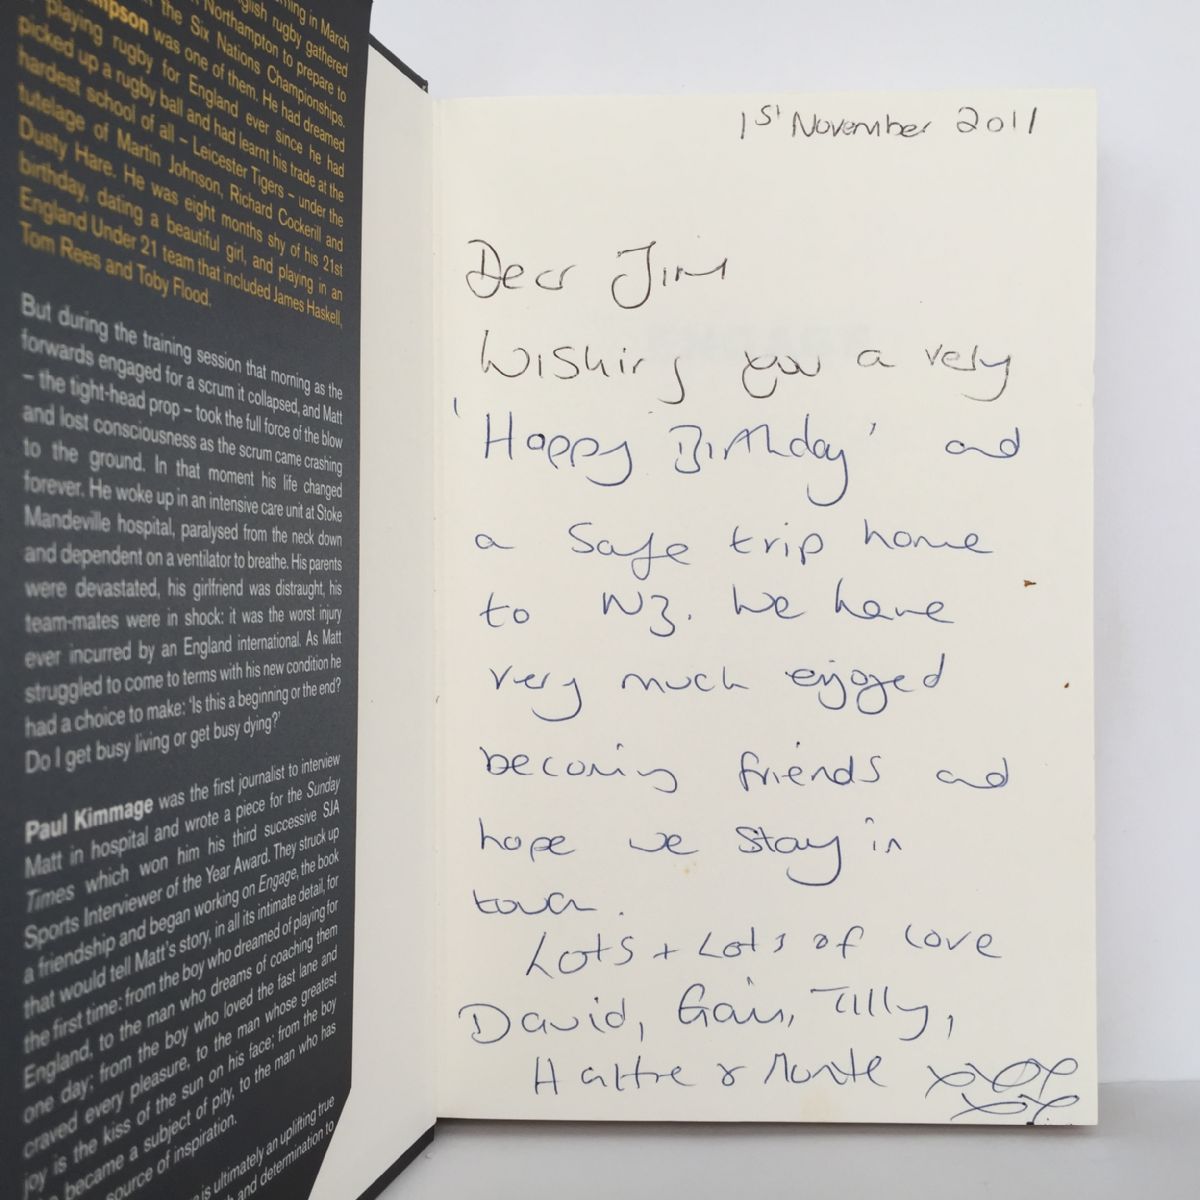 ning in March
glish rugby gathered
Northampton to prepare to
the Six Nations Championships.
mpson was one of them. He had dreamed
playing rugby for England ever since he had
picked up a rugby ball and had learnt his trade at the
hardest school of all – Leicester Tigers – under the
tutelage of Martin Johnson, Richard Cockerill and
Dusty Hare. He was eight months shy of his 21st
birthday, dating a beautiful girl, and playing in an
England Under 21 team that included James Haskell,
Tom Rees and Toby Flood.
But during the training session that morning as the
forwards engaged for a scrum it collapsed, and Matt
– the tight-head prop – took the full force of the blow
and lost consciousness as the scrum came crashing
to the ground. In that moment his life changed
forever. He woke up in an intensive care unit at Stoke
Mandeville hospital, paralysed from the neck down
and dependent on a ventilator to breathe. His parents
were devastated, his girlfriend was distraught, his
team-mates were in shock: it was the worst injury
ever incurred by an England international. As Matt
struggled to come to terms with his new condition he
had a choice to make: 'Is this a beginning or the end?
Do I get busy living or get busy dying?'
Paul Kimmage was the first journalist to interview
Matt in hospital and wrote a piece for the Sunday
Times which won him his third successive SJA
Sports Interviewer of the Year Award. They struck up
a friendship and began working on Engage, the book
that would tell Matt's story, in all its intimate detail, for
the first time: from the boy who dreamed of playing for
England, to the man who dreams of coaching them
one day; from the boy who loved the fast lane and
craved every pleasure, to the man whose greatest
joy is the kiss of the sun on his face; from the boy
became a subject of pity, to the man who has
source of inspiration.
is ultimately an uplifting true
and determination to
1st November 2011
Dear Jim
Wishing you a very
'Happy Birthday' and
a safe trip home
to NZ. We have
very much enjoyed
becoming friends and
hope we stay in
touch.
Lots + Lots of love
David, Tilly,
& Monte